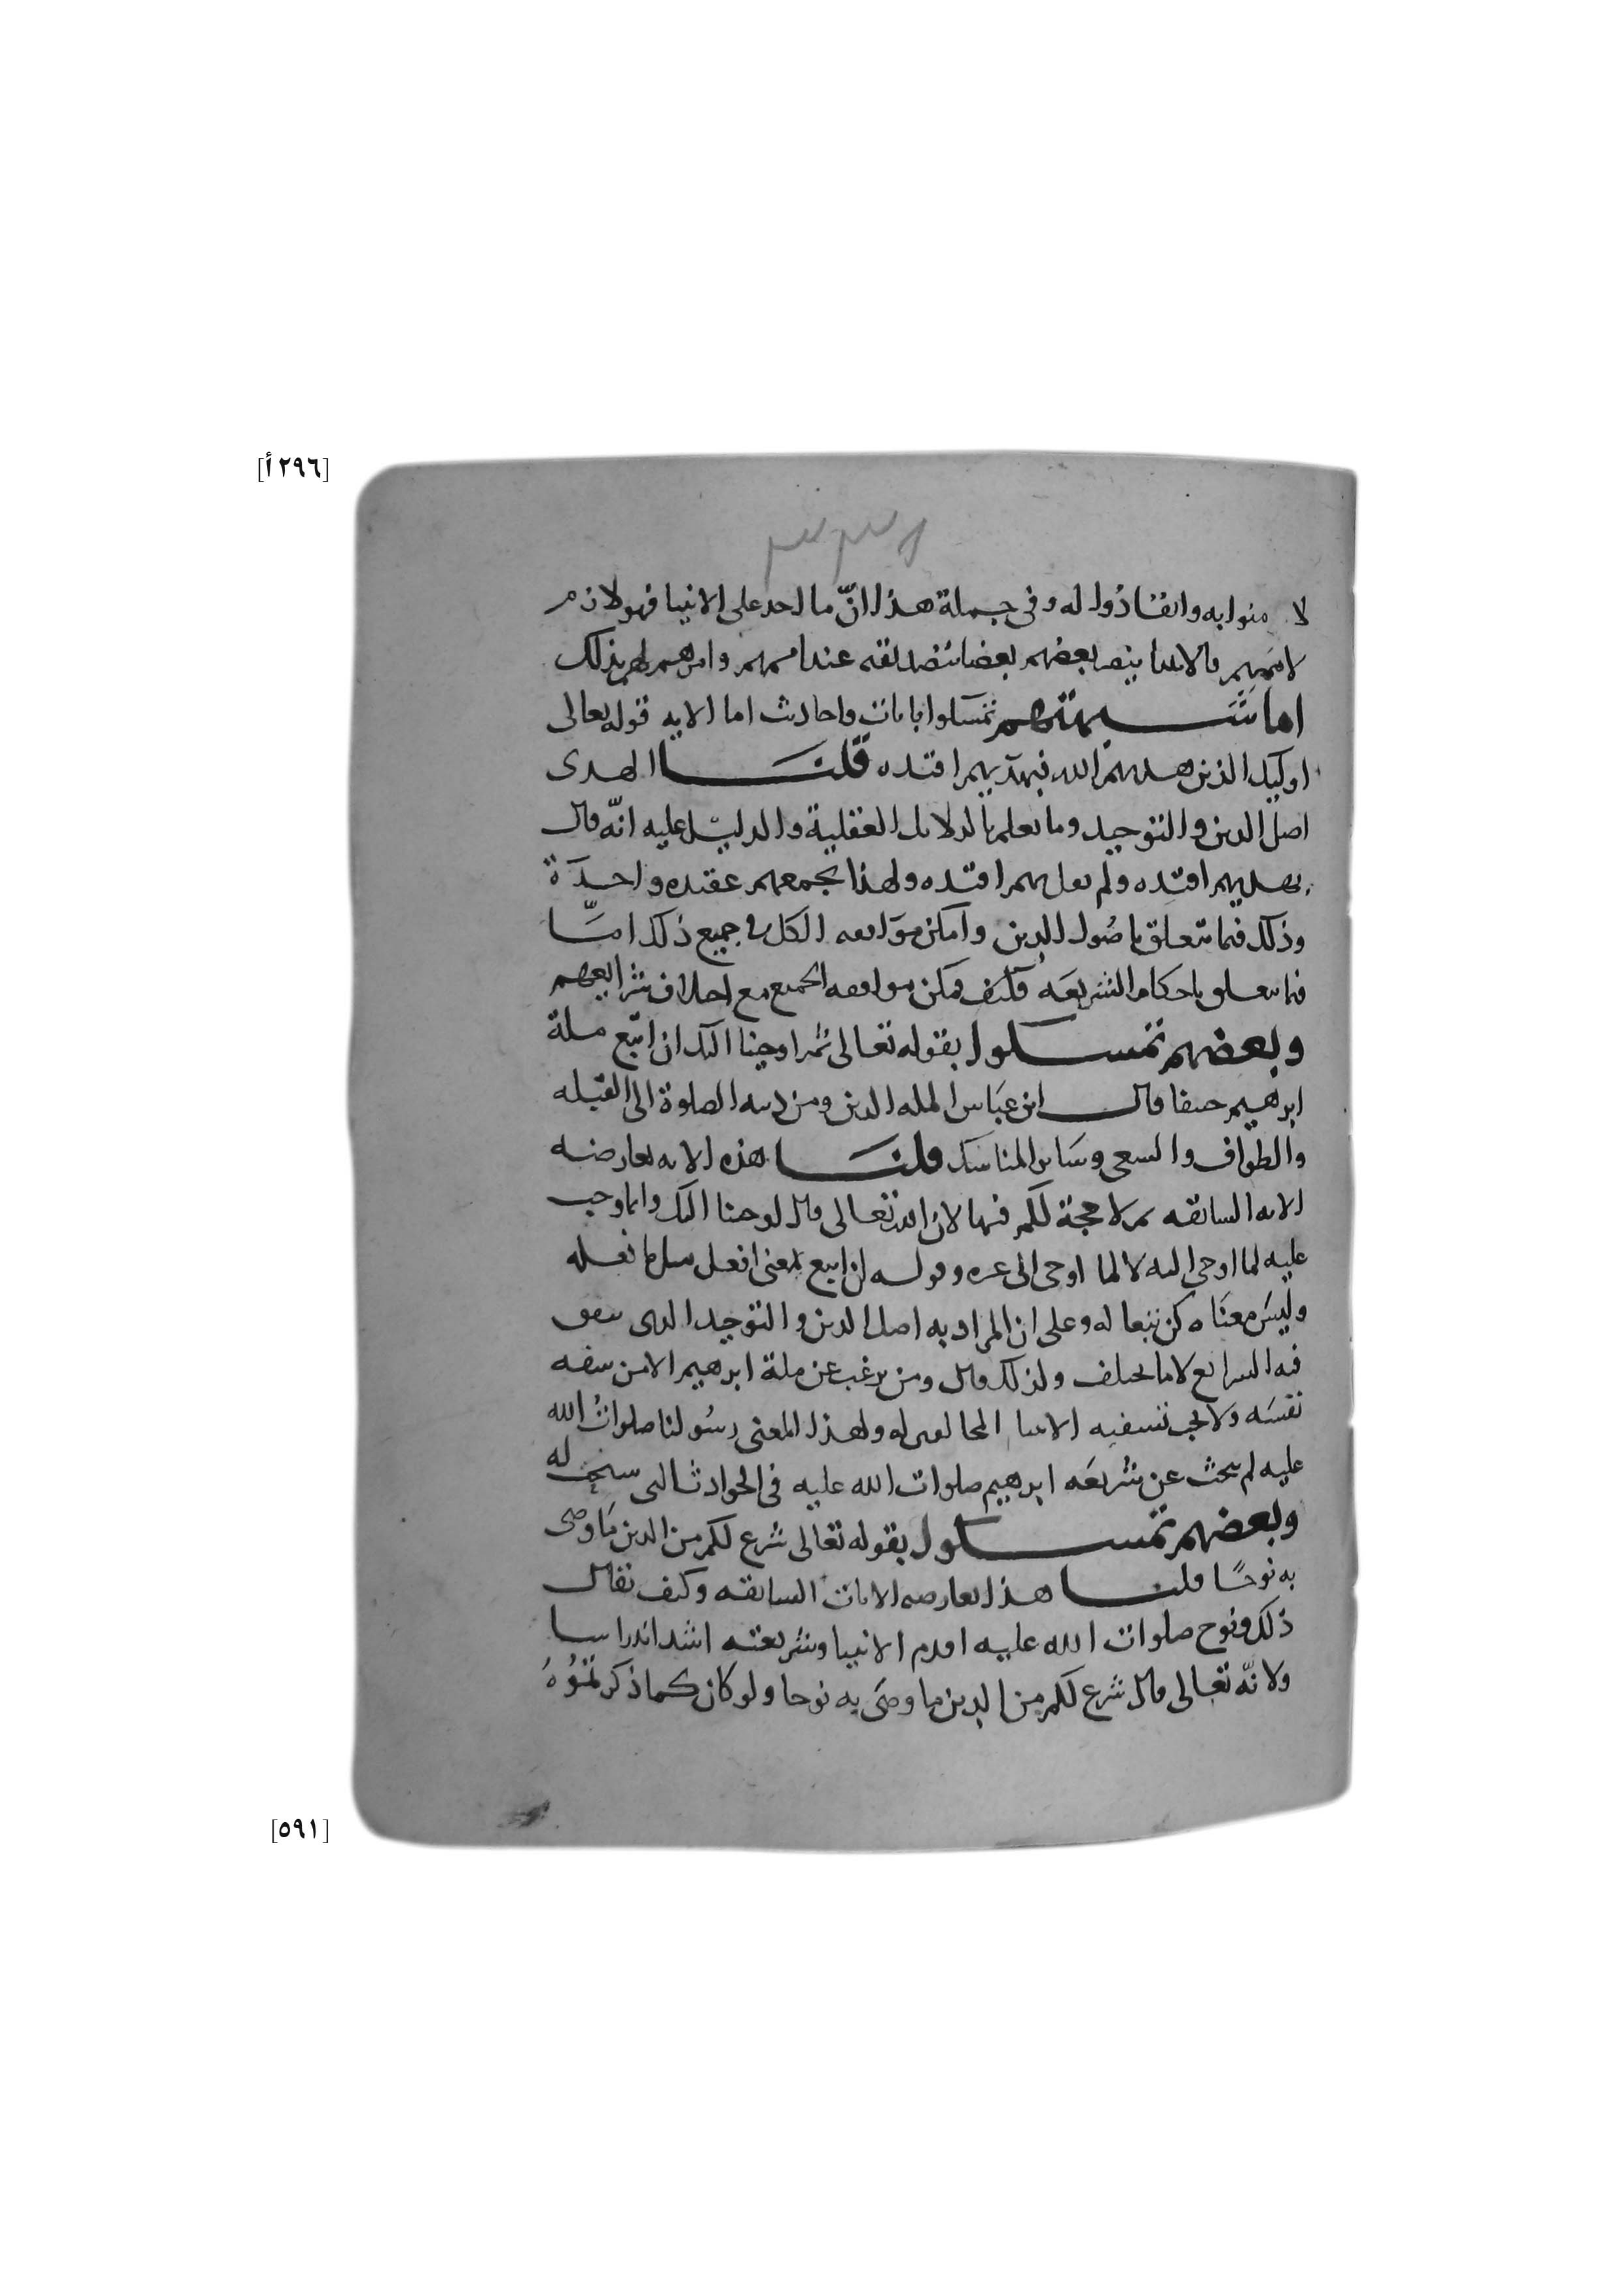 [٢٩٦أ]
لا منوا به وانقادوا له وفى جملة هذا انّ ما اخد على الانبيا فهو لازم
لاممهم فالانبيا ينصر بعضهم بعضا بتصديقه عند اممهم وامرهم لهم بذلك
اما شبهتهم تمسكوا بايات واحاديث اما الايه قوله تعالى
اوليك الذين هديهم الله فبهديهم اقتده قلنا الهدى
اصل الدين والتوحيد وما يعلم بالدلايل العقلية والدليل عليه انّه قال
بهديهم اقتده ولم يقل بهم اقتده ولهذا يجمعهم عقيده واحدة
وذلك فيما يتعلق باصُول الدين وامكن موَافقه الكل فى جميع ذلك امّا
فيما يتعلق باحكام الشريعَه فكيف يمكن موافقه الجميع مع اختلاف شرايعهم
وبعضهم تمسكوا بقوله تعالى ثم اوحينا اليك ان اتبع ملة
ابرهيم حنيفا قال ابن عبَاس المله الدين ومن دينه الصلوة الى القبله
والطواف والسعى وسَاير المناسك قلنا هذه الايه تعارضه
الايه السابقه ثم لا حجة لكم فيها لان الله تعالى قال اوحينا اليك وانما وجب
عليه لما اوحى اليه لا لما اوحى الى غيره وقوله ان اتبع بمعنى افعل مثل ما فعله
وليسَ معنَاه كن تبعا له وعلى ان المراد به اصل الدين والتوحيد الذى يتفق
فيه الشرايع لا ما يختلف ولذلك قال ومن يرغب عن ملة ابرهيم الا من سفه
نفسَه ولا يجب تسفيه الانبيا المخالفين له ولهذا المعنى رسُولنا صلواتُ الله
عليه لم يبحث عن شريعَه ابرهيم صلوات الله عليه فى الحوادث التى سنحت له
وبعضهم تمسكوا بقوله تعالى شرع لكم من الدين مَا وصى
به نوحًا قلنا هذا يعارضه الايات السابقه وكيف يقال
ذلك ونوح صلوات الله عليه اقدم الانبيا وشريعته اشد اندراسا
ولانّه تعالى قال شرع لكم من الدين ما وصَى به نوحا ولو كان كما ذكرتمُوُهُ
[٥٩١]